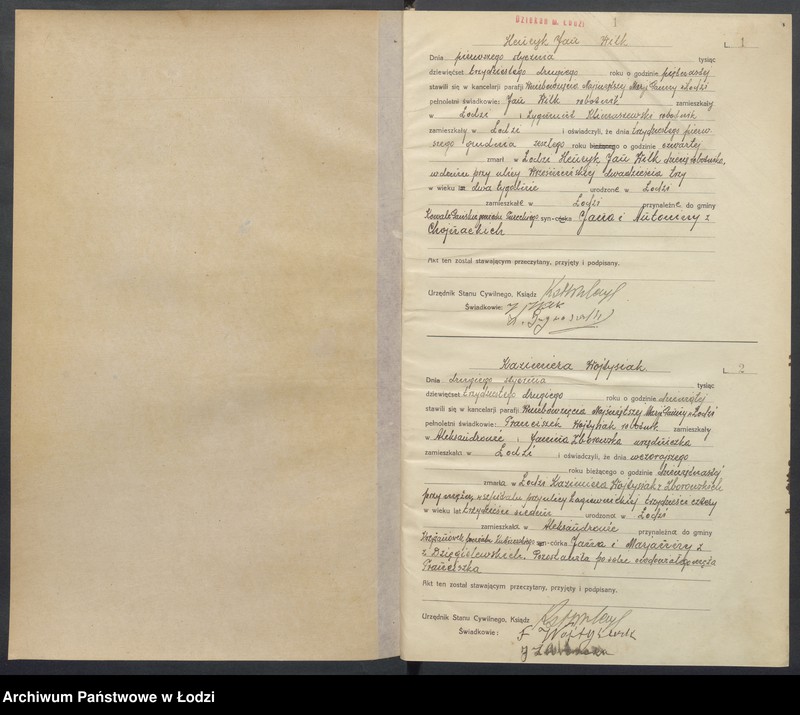 DZIEKAN M. ŁODZI 1
Henryk Jan Wilk 1
Dnia pierwszego stycznia tysiąc
dziewięćset trzydziestego drugiego roku o godzinie piętnastej
stawili się w kancelarji parafji Wniebowzięcia Najświętszej Marji Panny w Łodzi
pełnoletni świadkowie: Jan Wilk robotnik zamieszkały
w Łodzi i Zygmunt robotnik
zamieszkały w Łodzi i oświadczyli, że dnia trzydziestego pierw-
szego grudnia zeszłego roku bieżącego o godzinie czwartej
zmarł w Łodzi Henryk Jan Wilk syn robotnika,
w domu przy ulicy dwadzieścia trzy
w wieku lat dwa tygodnie urodzony w Łodzi
zamieszkał w Łodzi przynależny do gminy
syn-córka Jana i Antoniny z
Chojnackich
Akt ten został stawającym przeczytany, przyjęty i podpisany.
Urzędnik Stanu Cywilnego, Ksiądz
Świadkowie: J. Wilk
Kazimiera Wojtysiak 2
Dnia drugiego stycznia tysiąc
dziewięćset trzydziestego drugiego roku o godzinie dziewiątej
stawili się w kancelarji parafji Wniebowzięcia Najświętszej Marji Panny w Łodzi
pełnoletni świadkowie: Franciszek Wojtysiak robotnik zamieszkały
w Aleksandrowie i Janina Zborowska urzędniczka
zamieszkała w Łodzi i oświadczyli, że dnia wczorajszego
roku bieżącego o godzinie dziewiętnastej
zmarła w Łodzi Kazimiera Wojtysiak z Zborowskich
przy mężu, w szpitalu przy ulicy Łagiewnickiej trzydzieści cztery
w wieku lat trzydzieści siedem urodzona w Łodzi
zamieszkała w Aleksandrowie przynależna do gminy
syn-córka Jana i Marjanny z
z Dzięgielewskich. Pozostawiła po sobie owdowiałego męża
Franciszka
Akt ten został stawającym przeczytany, przyjęty i podpisany.
Urzędnik Stanu Cywilnego, Ksiądz
Świadkowie: F Wojtysiak
Archiwum Państwowe w Łodzi